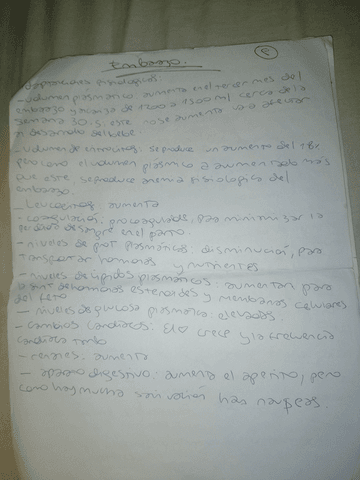 Embarazo.
Adaptaciones fisiológicas:
- volumen plasmático: aumenta en el tercer mes del
embarazo y alcanza de 1200 a 1500 ml cerca de la
semana 30-s. este no se aumenta va a afectar
el desarrollo del bebé
- volumen de eritrocitos: se produce un aumento del 18%
pero como el volumen plásmico a aumentado más
que este, se produce anemia fisiológica del
embarazo.
- Leucocitos: aumenta
- coagulación: procoagulable, para minimizar la
perdida de sangre en el parto.
- niveles de prot plasmáticos: disminución, para
transportar hormonas y nutrientes
- niveles de lípidos plasmáticos: aumentan para
la sint de hormonas esteroides y membranas celulares
del feto
- niveles de glucosa plasmática: elevados.
- cambios cardíacos: El ♡ crece y la frecuencia
cardíaca tmb
- renales: aumenta
- aparato digestivo: aumenta el apetito, pero
como hay mucha salivación hay nauseas.